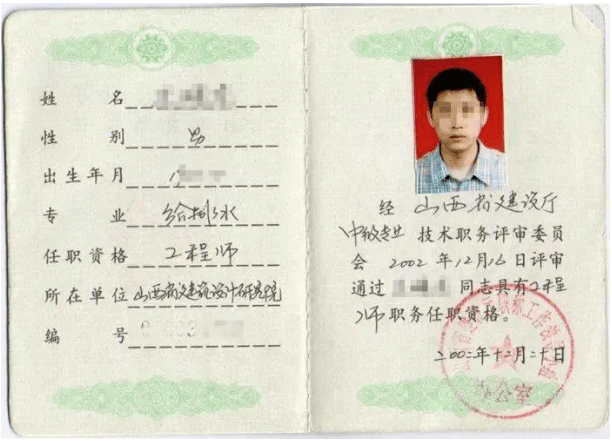 姓 名
性 别 男
出生年月 19
专 业 给排水
任职资格 工程师
所在单位 山西省建筑设计研究院
编 号
经 山西省建设厅
中级专业 技术职务评审委员
会 2002 年 12 月 16 日评审
通过 同志具有 工程
师 职务任职资格。
二00二年十二月二十日